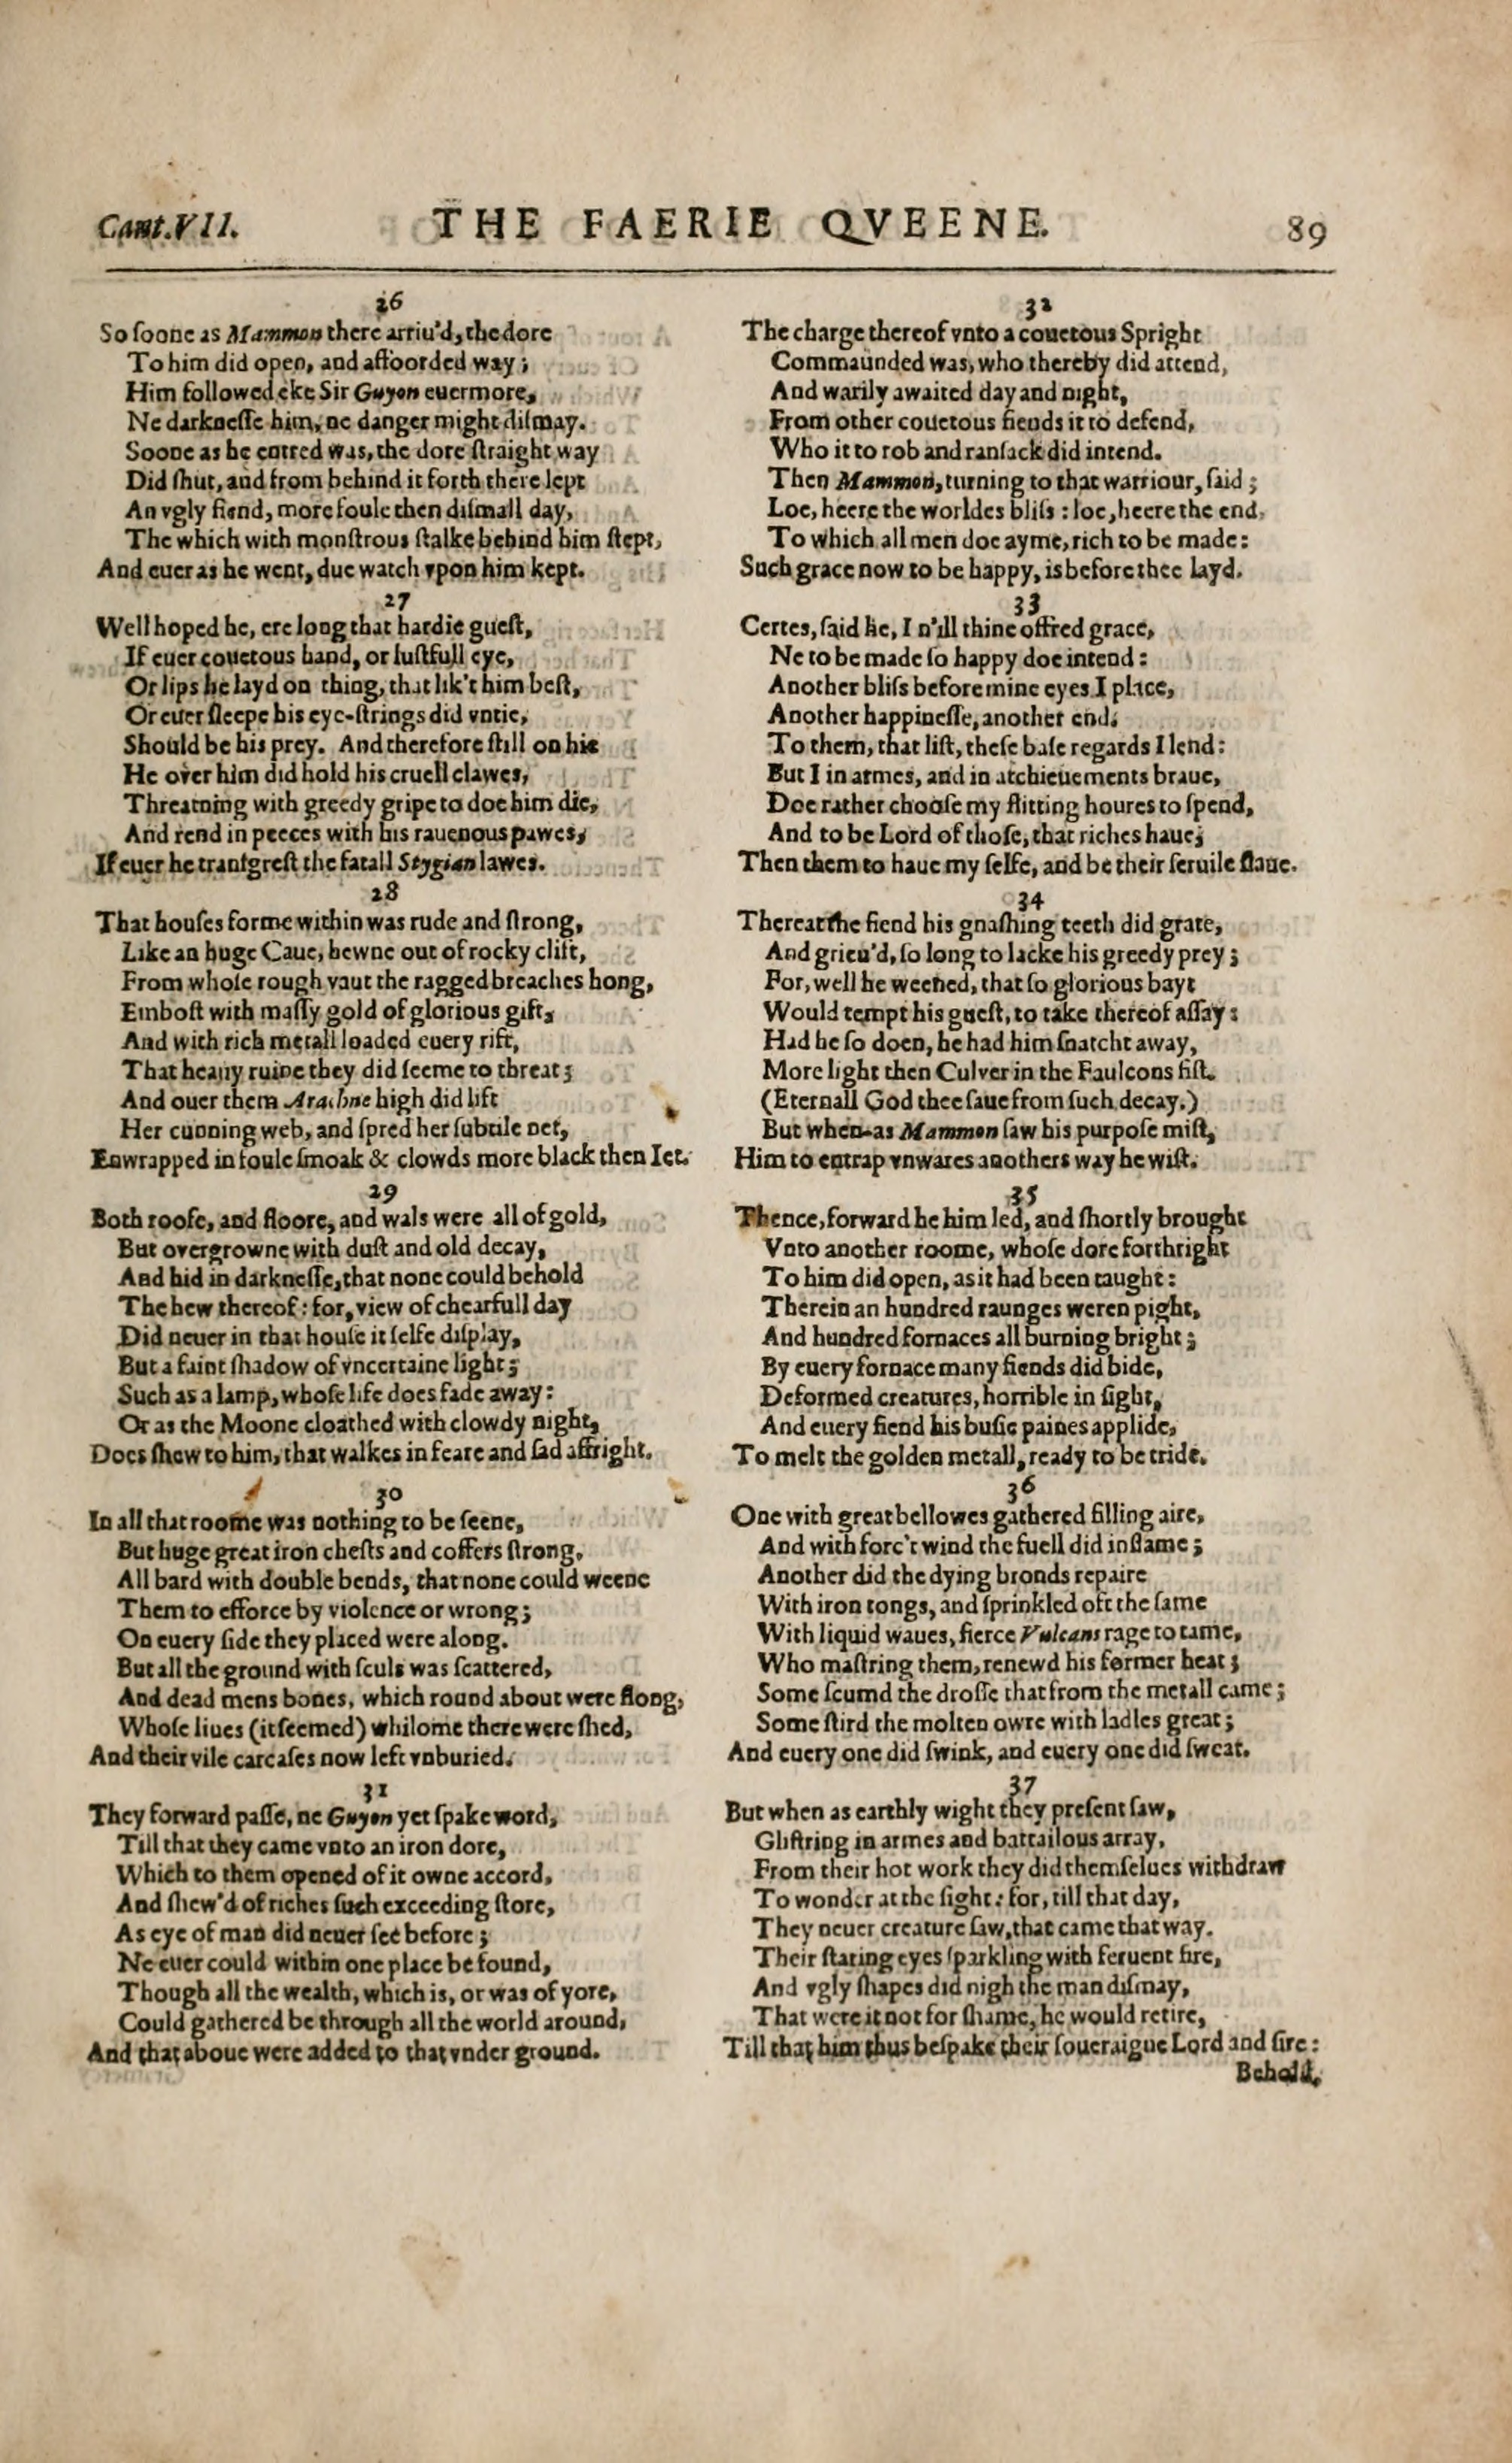 Cant. VII.
THE FAERIE QVEENE.
89
26
So ſoone as Mammon there arriu'd, the dore
To him did open, and affoorded way;
Him followed eke Sir Guyon euermore,
Ne darkneſſe him, ne danger might diſmay.
Soone as he entred was, the dore ſtraight way
Did ſhut, and from behind it forth there lept
An vgly fiend, more foule then diſmall day,
The which with monſtrous ſtalke behind him ſtept,
And euer as he went, due watch vpon him kept.
27
Well hoped he, ere long that hardie gueſt,
If euer couetous hand, or luſtfull eye,
Or lips he layd on thing, that lik't him beſt,
Or euer ſleepe his eye-ſtrings did vntie,
Should be his prey. And therefore ſtill on hie
He over him did hold his cruell clawes,
Threatning with greedy gripe to doe him die,
And rend in peeces with his rauenous pawes,
If euer he tranſgreſt the fatall Stygian lawes.
28
That houſes forme within was rude and ſtrong,
Like an huge Caue, hewne out of rocky clift,
From whoſe rough vaut the ragged breaches hong,
Emboſt with maſſy gold of glorious gift,
And with rich metall loaded euery rift,
That heauy ruine they did ſeeme to threat;
And ouer them Arachne high did lift
Her cunning web, and ſpred her ſubtile net,
Enwrapped in foule ſmoak & clowds more black then Iet.
29
Both roofe, and floore, and wals were all of gold,
But overgrowne with duſt and old decay,
And hid in darkneſſe, that none could behold
The hew thereof: for, view of chearfull day
Did neuer in that houſe it ſelfe diſplay,
But a faint ſhadow of vncertaine light;
Such as a lamp, whoſe life does fade away:
Or as the Moone cloathed with clowdy night,
Does ſhew to him, that walkes in feare and ſad affright.
30
In all that roome was nothing to be ſeene,
But huge great iron cheſts and coffers ſtrong,
All bard with double bends, that none could weene
Them to efforce by violence or wrong;
On euery ſide they placed were along.
But all the ground with ſculs was ſcattered,
And dead mens bones, which round about were flong,
Whoſe liues (it ſeemed) whilome there were ſhed,
And their vile carcaſes now left vnburied.
31
They forward paſſe, ne Guyon yet ſpake word,
Till that they came vnto an iron dore,
Which to them opened of it owne accord,
And ſhew'd of riches ſuch exceeding ſtore,
As eye of man did neuer ſee before;
Ne euer could within one place be found,
Though all the wealth, which is, or was of yore,
Could gathered be through all the world around,
And that aboue were added to that vnder ground.
32
The charge thereof vnto a couetous Spright
Commaunded was, who thereby did attend,
And warily awaited day and night,
From other couetous fiends it to defend,
Who it to rob and ranſack did intend.
Then Mammon, turning to that warriour, ſaid;
Loe, heere the worldes bliſs: loe, heere the end,
To which all men doe ayme, rich to be made:
Such grace now to be happy, is before thee layd.
33
Certes, ſaid he, I n'ill thine offred grace,
Ne to be made ſo happy doe intend:
Another bliſs before mine eyes I place,
Another happineſſe, another end.
To them, that liſt, theſe baſe regards I lend:
But I in armes, and in atchieuements braue,
Doe rather chooſe my flitting houres to ſpend,
And to be Lord of thoſe, that riches haue;
Then them to haue my ſelfe, and be their ſeruile ſlaue.
34
Thereat the fiend his gnaſhing teeth did grate,
And grieu'd, ſo long to lacke his greedy prey;
For, well he weened, that ſo glorious bayt
Would tempt his gueſt, to take thereof aſſay:
Had he ſo doen, he had him ſnatcht away,
More light then Culver in the Faulcons fiſt.
(Eternall God thee ſaue from ſuch decay.)
But when-as Mammon ſaw his purpoſe miſt,
Him to entrap vnwares anothers way he wiſt.
35
Thence, forward he him led, and ſhortly brought
Vnto another roome, whoſe dore forthright
To him did open, as it had been taught:
Therein an hundred raunges weren pight,
And hundred fornaces all burning bright;
By euery fornace many fiends did bide,
Deformed creatures, horrible in ſight,
And euery fiend his buſie paines applide,
To melt the golden metall, ready to be tride.
36
One with great bellowes gathered filling aire,
And with forc't wind the fuell did inflame;
Another did the dying bronds repaire
With iron tongs, and ſprinkled oft the ſame
With liquid waues, fierce Vulcans rage to tame,
Who maſtring them, renewd his former heat;
Some ſcumd the droſſe that from the metall came;
Some ſtird the molten owre with ladles great;
And euery one did ſwink, and euery one did ſweat.
37
But when as earthly wight they preſent ſaw,
Gliſtring in armes and battailous array,
From their hot work they did themſelues withdraw
To wonder at the ſight: for, till that day,
They neuer creature ſaw, that came that way.
Their ſtaring eyes ſparkling with feruent fire,
And vgly ſhapes did nigh the man diſmay,
That were it not for ſhame, he would retire,
Till that him thus beſpake their ſoueraigne Lord and ſire:
Behold,